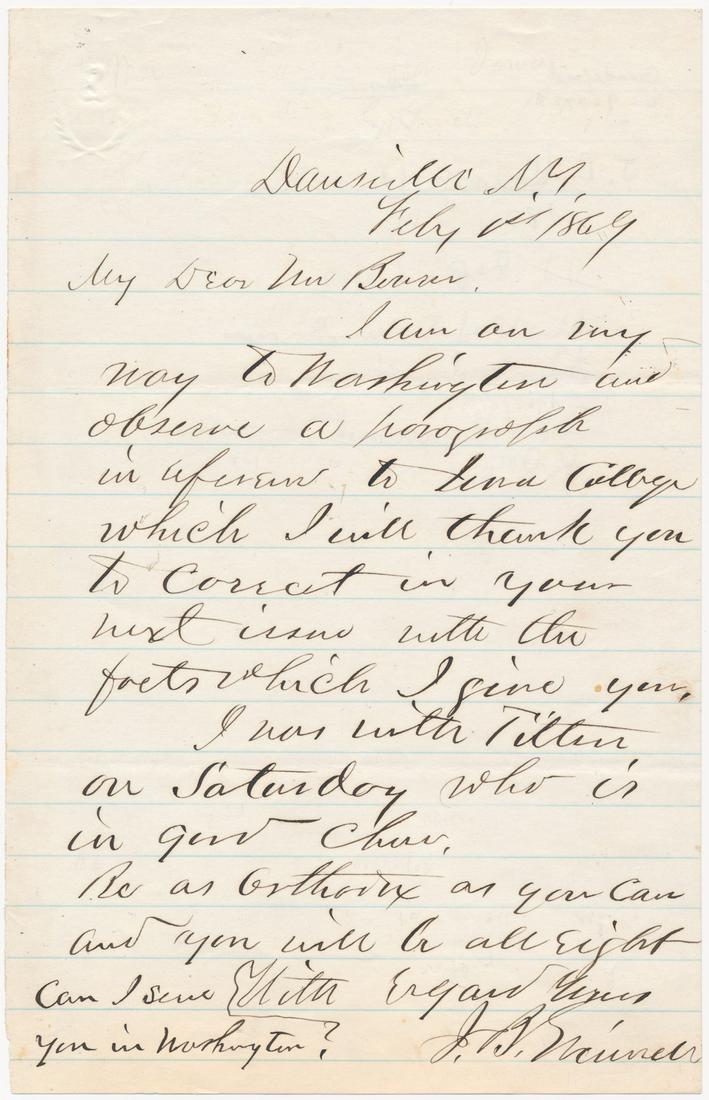 Dansville N.Y.
Feby 1st 1869
My Dear Mr Bowen.
I am on my
way to Washington and
observe a paragraph
in reference to Iowa College
which I will thank you
to correct in your
next issue with the
facts which I give you.
I was with Tilton
on Saturday who is
in good cheer.
Be as Orthodox as you can
and you will be all right
With regard Yours
J. B.
Can I serve
you in Washington?